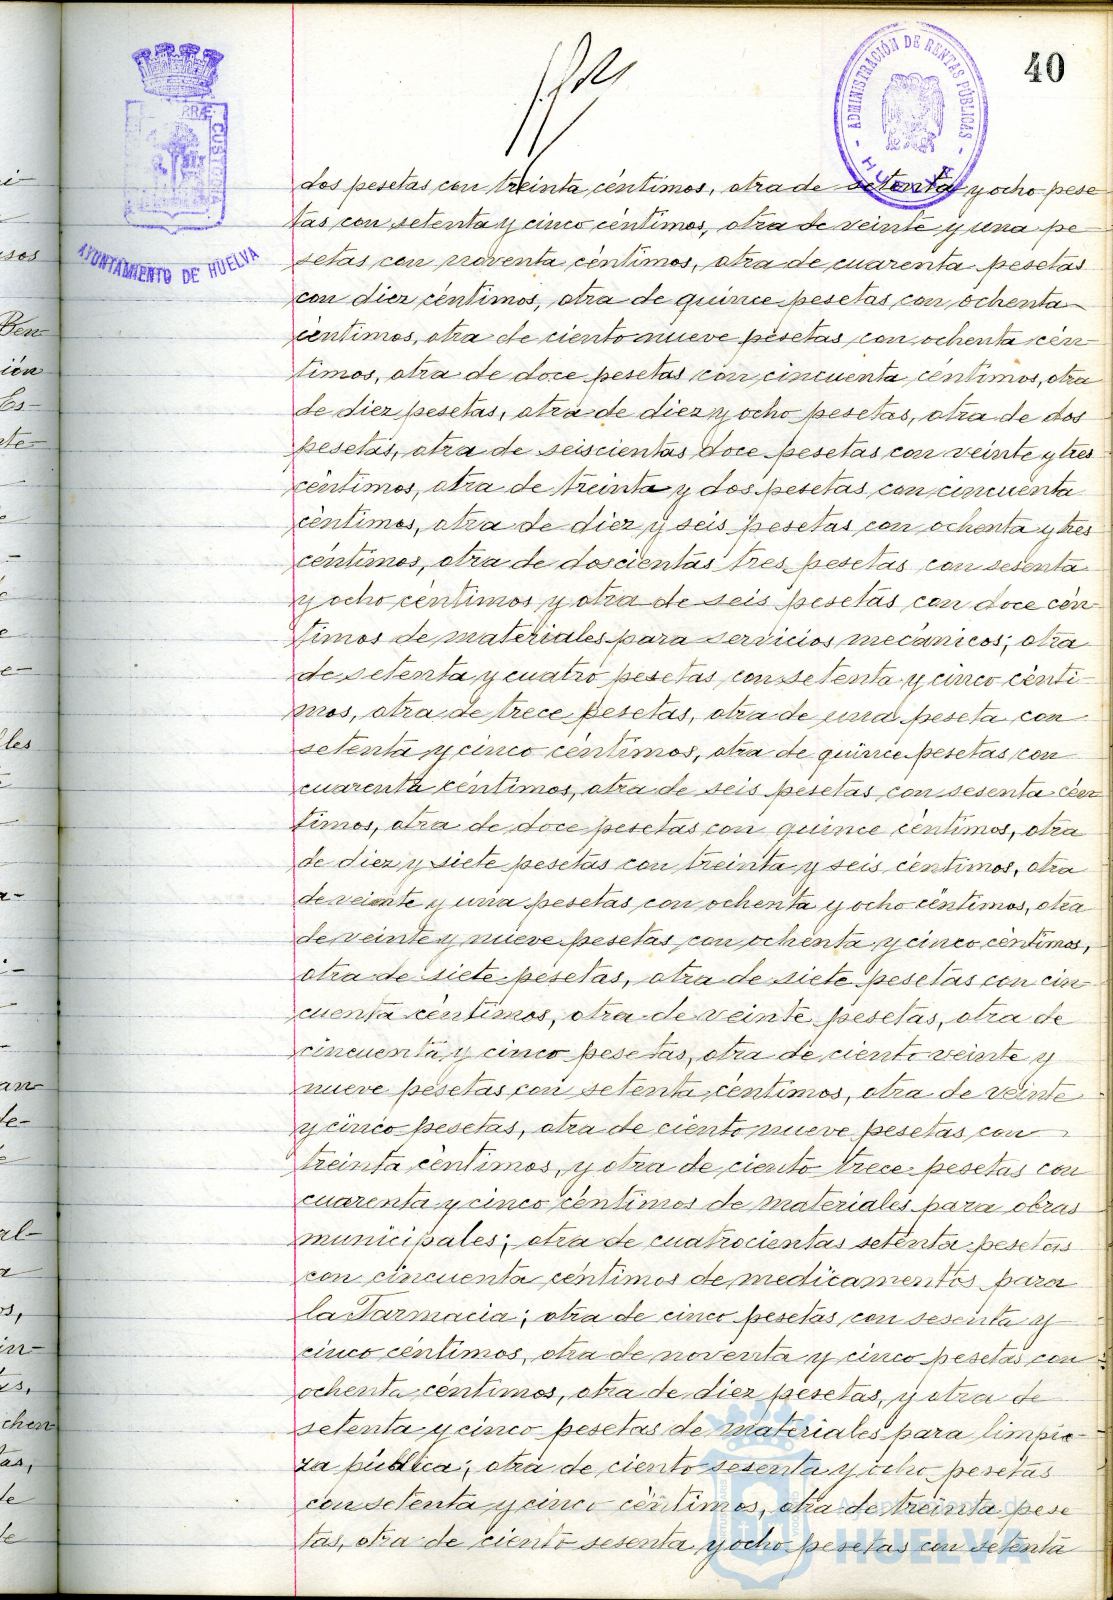 40
AYUNTAMIENTO DE HUELVA
ADMINISTRACIÓN DE RENTAS PÚBLICAS
HUELVA
dos pesetas con treinta céntimos, otra de setenta y ocho pese
tas con setenta y cinco céntimos, otra de veinte y una pe
setas con noventa céntimos, otra de cuarenta pesetas
con diez céntimos, otra de quince pesetas con ochenta
céntimos, otra de ciento nueve pesetas con ochenta cén-
timos, otra de doce pesetas con cincuenta céntimos, otra
de diez pesetas, otra de diez y ocho pesetas, otra de dos
pesetas, otra de seiscientas doce pesetas con veinte y tres
céntimos, otra de treinta y dos pesetas con cincuenta
céntimos, otra de diez y seis pesetas con ochenta y tres
céntimos, otra de doscientas tres pesetas con sesenta
y ocho céntimos y otra de seis pesetas con doce cén-
timos de materiales para servicios mecánicos; otra
de setenta y cuatro pesetas con setenta y cinco cénti-
mos, otra de trece pesetas, otra de una peseta con
setenta y cinco céntimos, otra de quince pesetas con
cuarenta céntimos, otra de seis pesetas con sesenta cén
timos, otra de doce pesetas con quince céntimos, otra
de diez y siete pesetas con treinta y seis céntimos, otra
de veinte y una pesetas con ochenta y ocho céntimos, otra
de veinte y nueve pesetas con ochenta y cinco céntimos,
otra de siete pesetas, otra de siete pesetas con cin
cuenta céntimos, otra de veinte pesetas, otra de
cincuenta y cinco pesetas, otra de ciento veinte y
nueve pesetas con setenta céntimos, otra de veinte
y cinco pesetas, otra de ciento nueve pesetas con
treinta céntimos, y otra de ciento trece pesetas con
cuarenta y cinco céntimos de materiales para obras
municipales; otra de cuatrocientas setenta pesetas
con cincuenta céntimos de medicamentos para
la Farmacia; otra de cinco pesetas con sesenta y
cinco céntimos, otra de noventa y cinco pesetas con
ochenta céntimos, otra de diez pesetas, y otra de
setenta y cinco pesetas de materiales para limpie-
za pública; otra de ciento sesenta y ocho pesetas
con setenta y cinco céntimos, otra de treinta pese
tas, otra de ciento sesenta y ocho pesetas con setenta
Ayuntamiento de
HUELVA